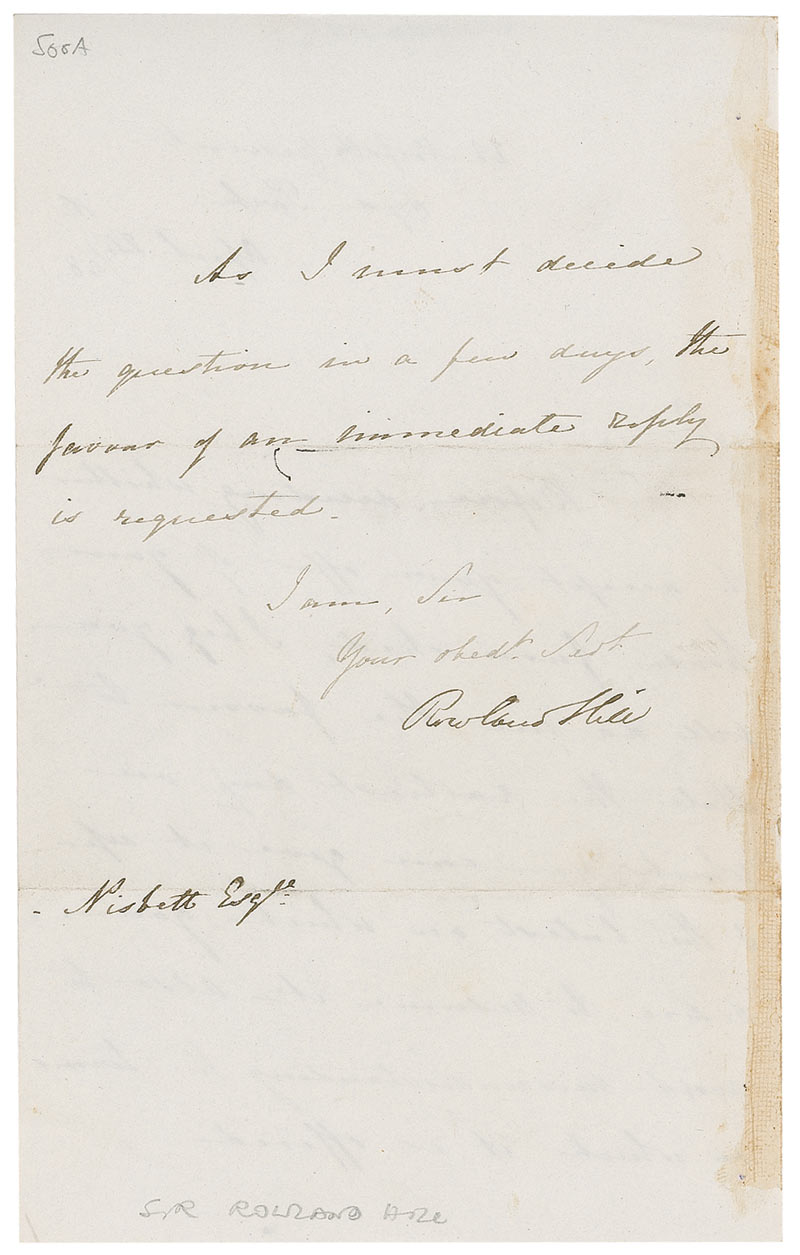 As I must decide
the question in a few days, the
favour of an immediate reply
is requested.
I am, Sir
Your obedt. Sevt
Rowland Hill
- Nisbett Esqre.
SIR ROWLAND HILL